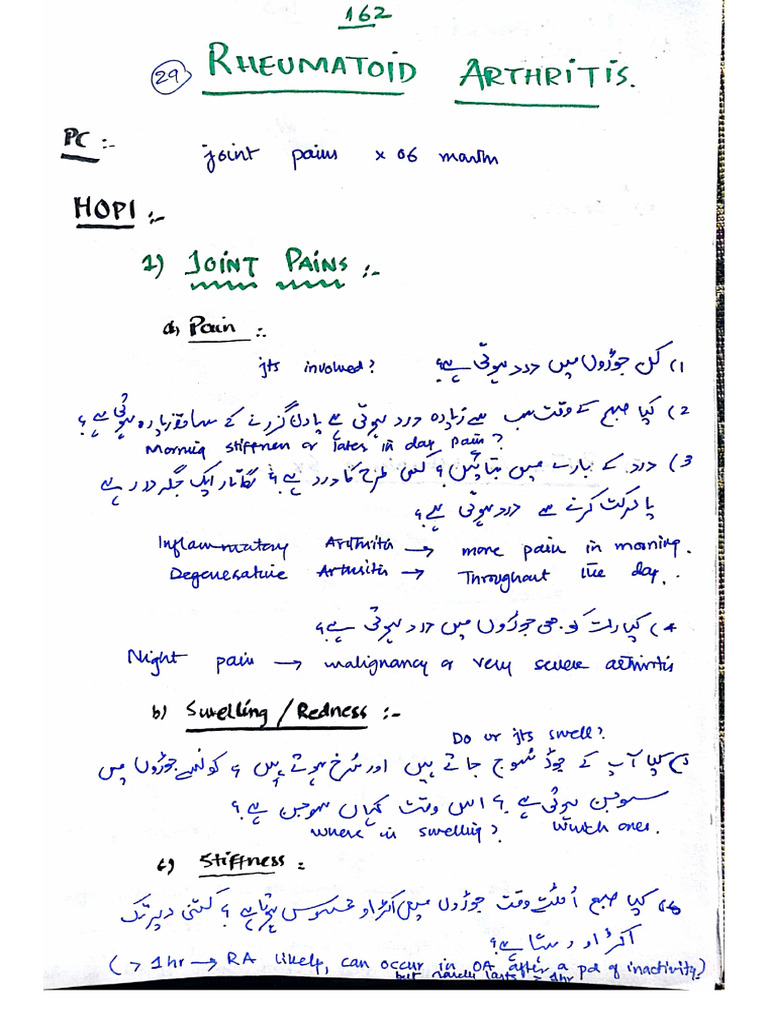 162
29 RHEUMATOID ARTHRITIS.
PC :- joint pains x 06 month
HOPI :-
1) JOINT PAINS :-
a) Pain :-
jts involved? 1) کن جوڑوں میں درد ہوتی ہے؟
2) کیا صبح کے وقت سب سے زیادہ درد ہوتی ہے یا دن گزرنے کے ساتھ زیادہ ہوتی ہے؟
Morning stiffness or later in day pain?
3) درد کے بارے میں بتائیں؟ کس طرح کا درد ہے؟ لگاتار ایک جگہ درد رہے
یا حرکت کرنے سے درد ہوتی ہے؟
Inflammatory Arthritis → more pain in morning.
Degenerative Arthritis → Throughout the day.
4) کیا رات کو بھی جوڑوں میں درد ہوتی ہے؟
Night pain → malignancy or very severe arthritis
b) Swelling / Redness :-
Do ur jts swell?
کیا آپ کے جوڑ سُوج جاتے ہیں اور سُرخ ہوتے ہیں؟ کونسے جوڑوں میں
سوجن ہوتی ہے؟ اس وقت کہاں سوجن ہے؟
where is swelling? Which ones.
c) Stiffness :
کیا صبح اُٹھتے وقت جوڑوں میں اکڑاو محسوس ہوتا ہے؟ کتنی دیر تک
اکڑاو رہتا ہے؟
(> 1hr → RA likely, can occur in OA after a pd of inactivity)
but rarely lasts > 1hr